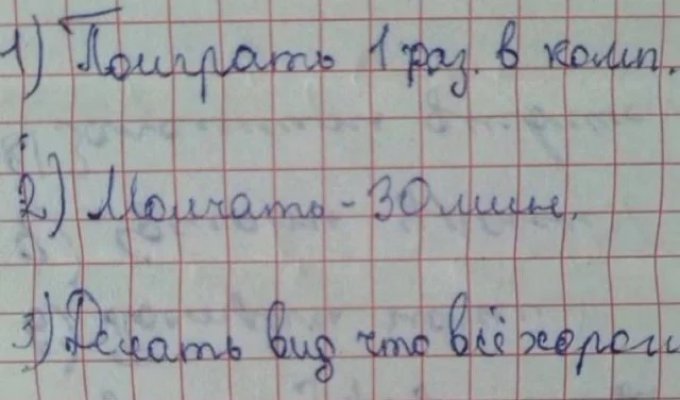 1) Поиграть 1 раз. в комп.
2) Молчать - 30 мин.
3) Делать вид что всё хорош